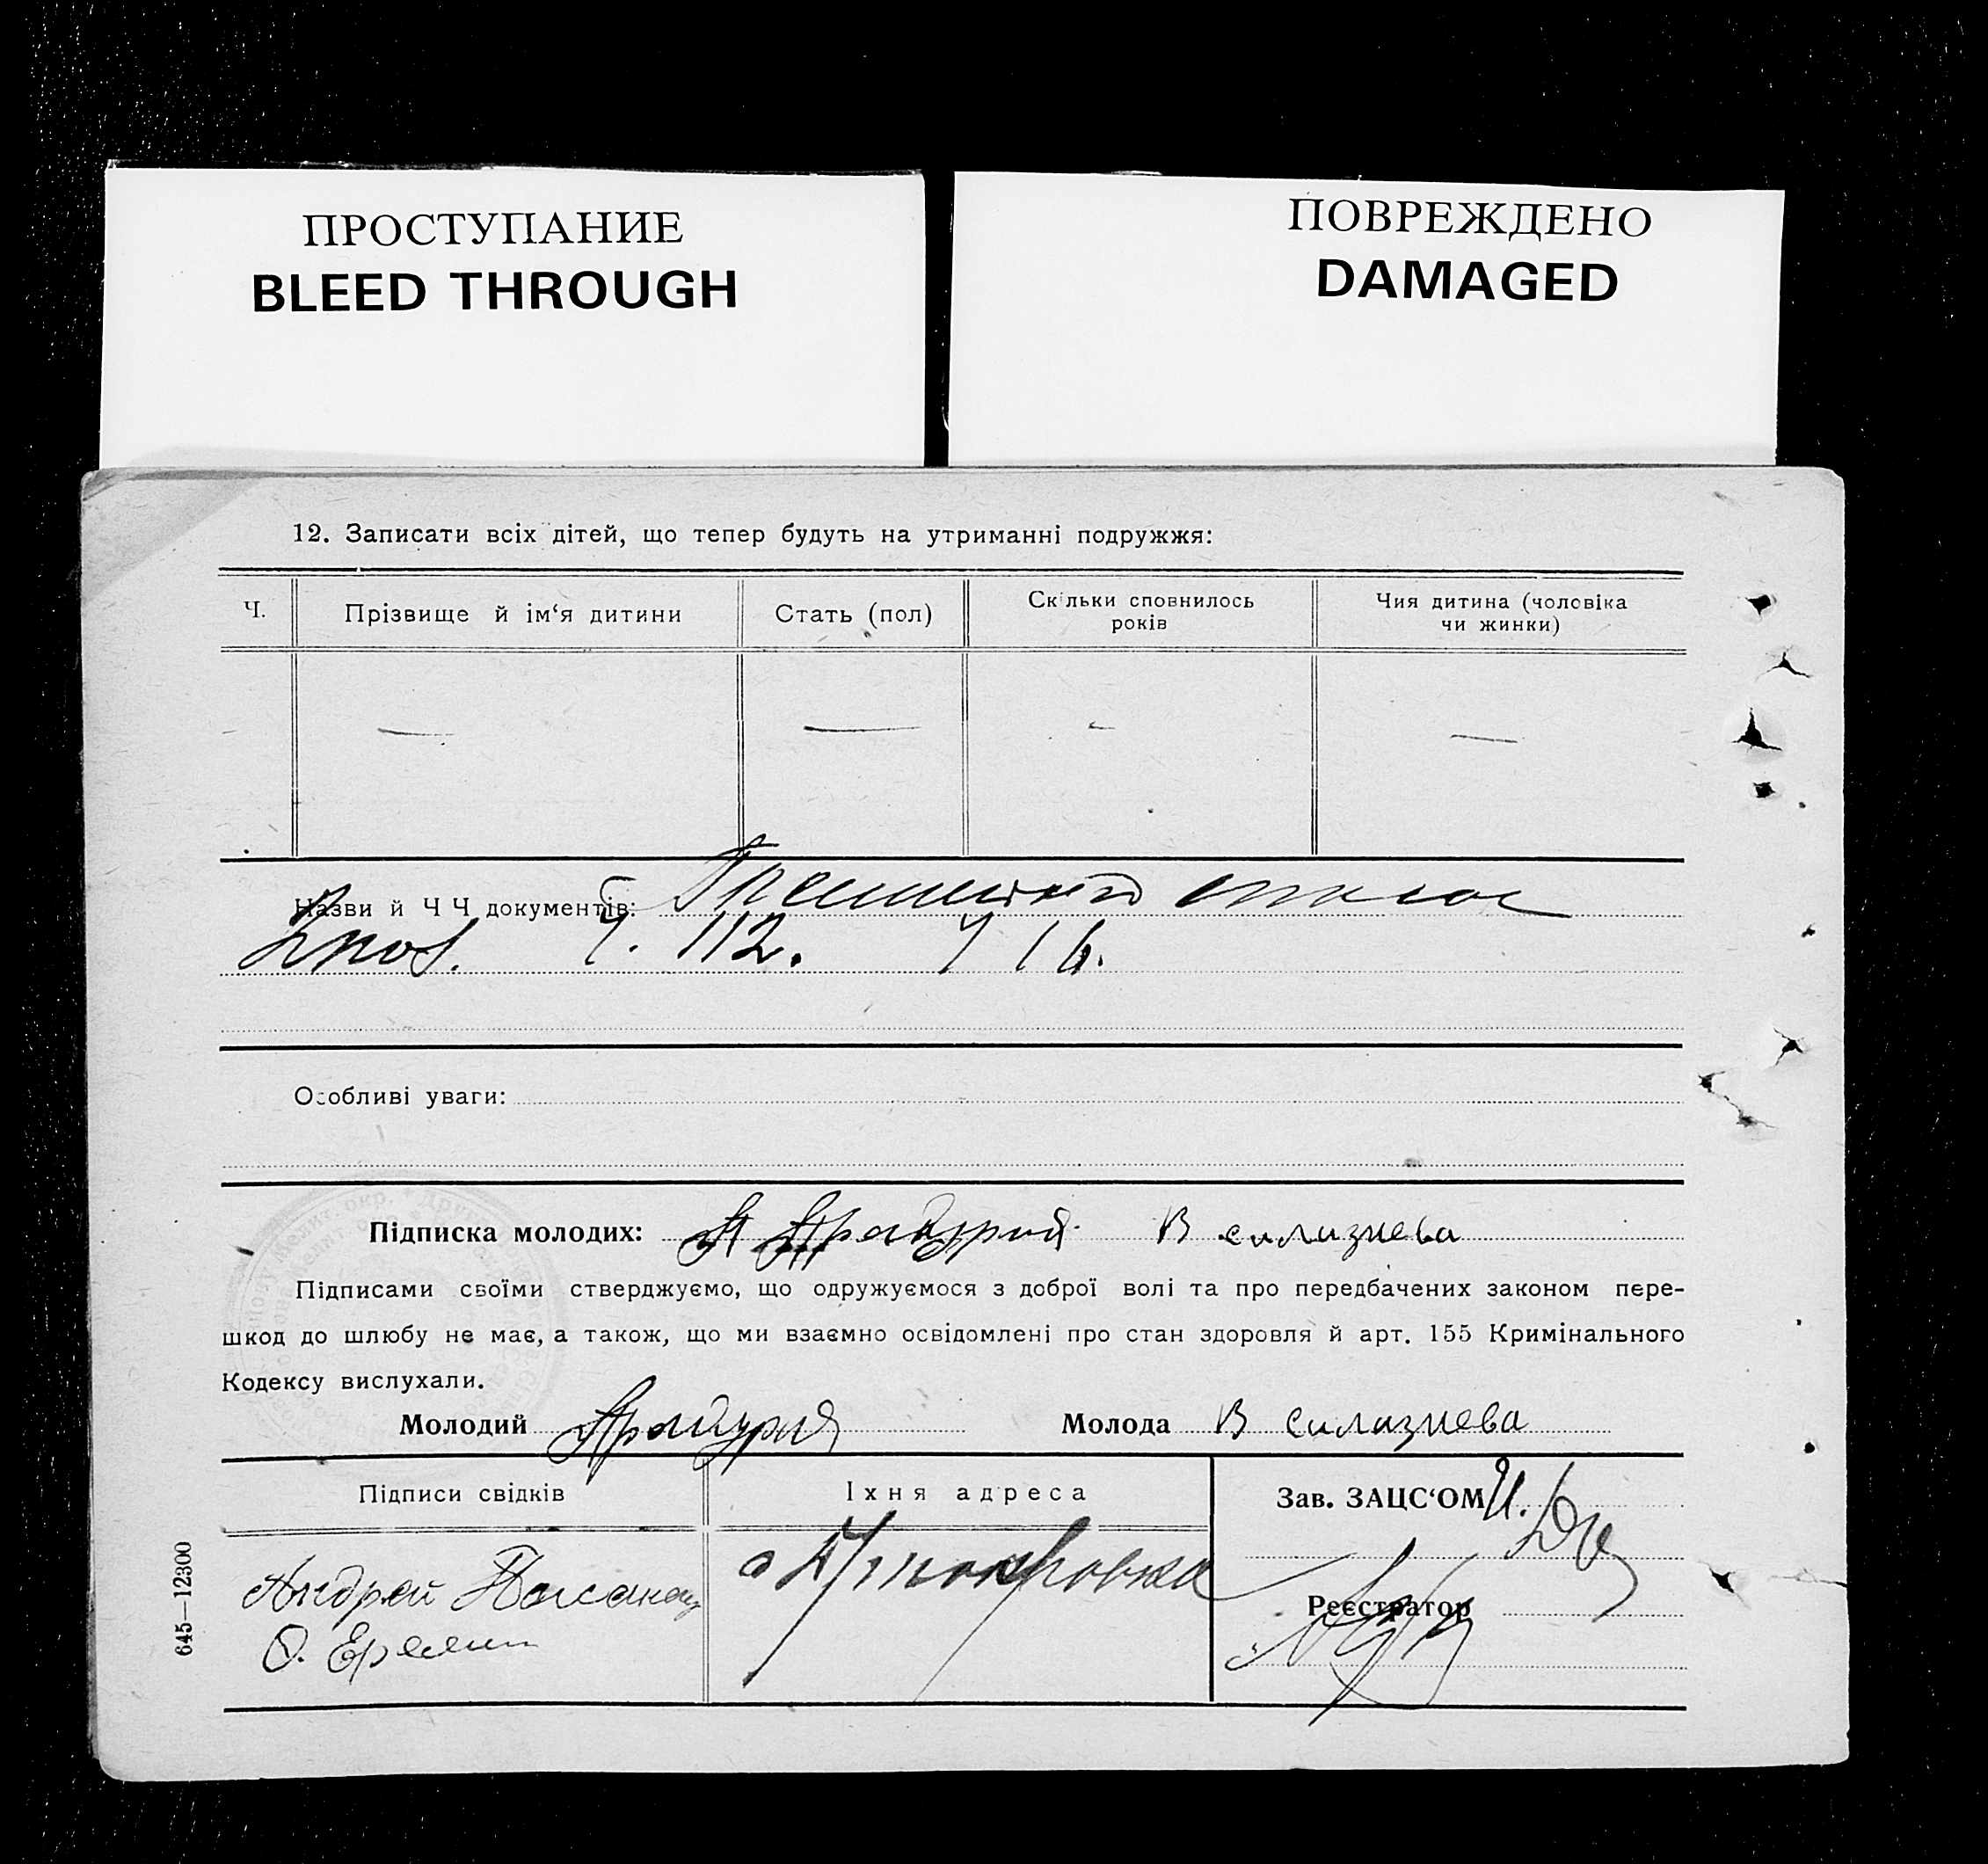 ПРОСТУПАНИЕ
BLEED THROUGH
ПОВРЕЖДЕНО
DAMAGED
12. Записати всіх дітей, що тепер будуть на утриманні подружжя:
Ч.
Прізвище й ім‘я дитини
Стать (пол)
Скільки сповнилось
років
Чия дитина (чоловіка
чи жинки)
Назви й Ч Ч документів:
Ч. 112.
Особливі уваги:
Підписка молодих: В Силизнева
Підписами своїми стверджуємо, що одружуємося з доброї волі та про передбачених законом пере-
шкод до шлюбу не має, а також, що ми взаємно освідомлені про стан здоровля й арт. 155 Кримінального
Кодексу вислухали.
Молодий
Молода В Силизнева
Підписи свідків
Їхня адреса
Зав. ЗАЦС‘ОМ
Андрей
О.
Реєстратор
645—12300